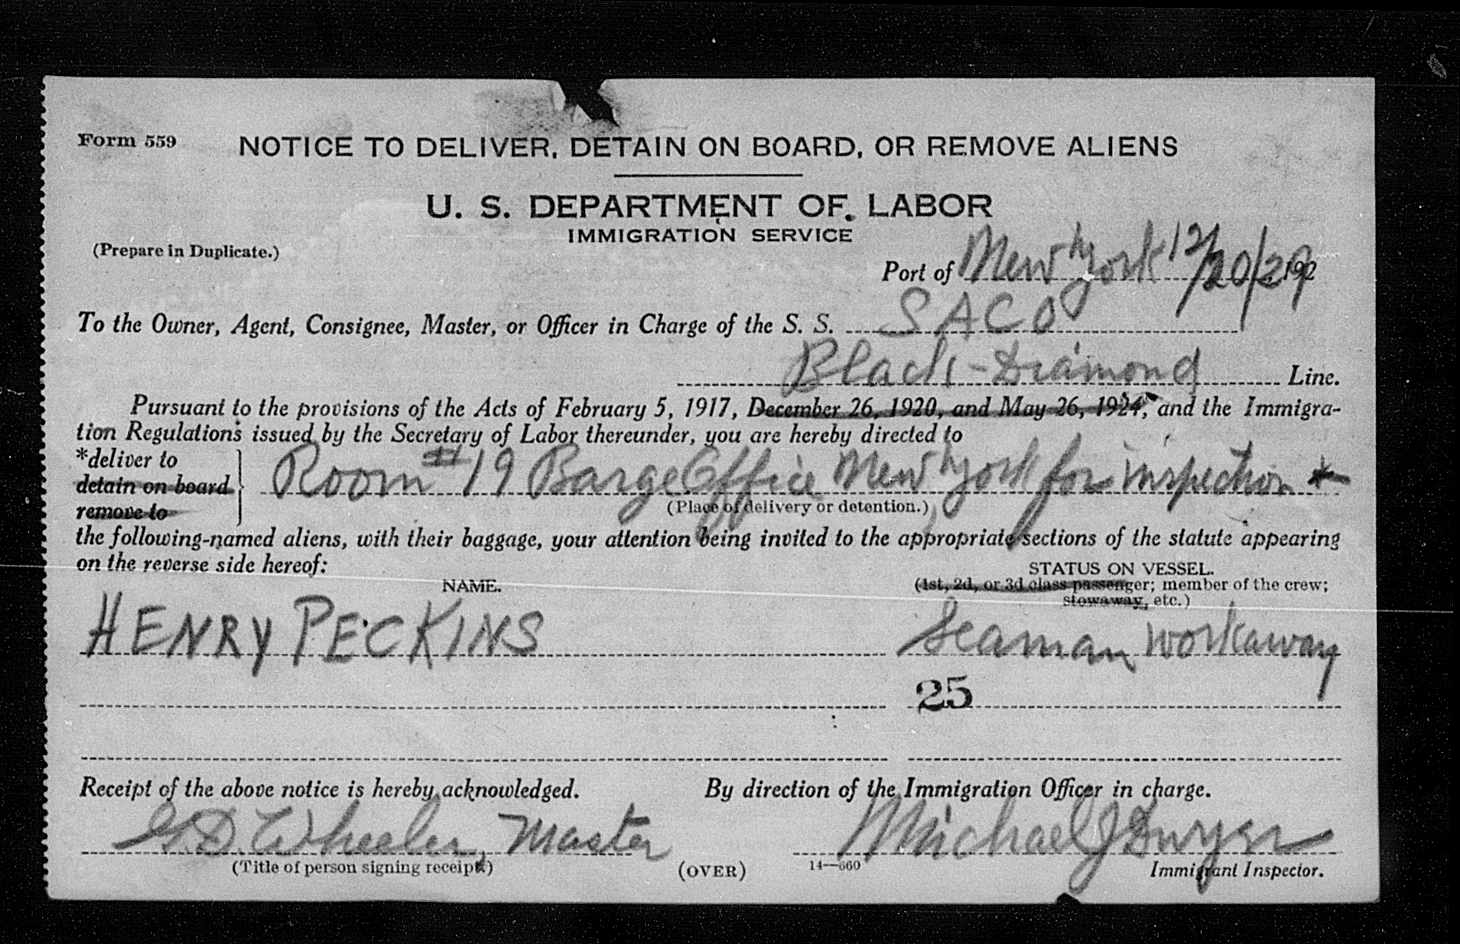 Form 559
NOTICE TO DELIVER, DETAIN ON BOARD, OR REMOVE ALIENS
U. S. DEPARTMENT OF LABOR
IMMIGRATION SERVICE
(Prepare in Duplicate.)
Port of New York 12/20/29, 192
To the Owner, Agent, Consignee, Master, or Officer in Charge of the S. S. SACO
Black-Diamond Line.
Pursuant to the provisions of the Acts of February 5, 1917, December 26, 1920, and May 26, 1924, and the Immigra-
tion Regulations issued by the Secretary of Labor thereunder, you are hereby directed to
*deliver to
detain on board
remove to
Room #19 Barge Office New York for inspection *
(Place of delivery or detention.)
the following-named aliens, with their baggage, your attention being invited to the appropriate sections of the statute appearing
on the reverse side hereof:
NAME.
STATUS ON VESSEL.
(1st, 2d, or 3d class passenger; member of the crew;
stowaway, etc.)
HENRY PECKINS Seaman workaway
25
Receipt of the above notice is hereby acknowledged.
By direction of the Immigration Officer in charge.
G.D. Wheeler, Master
Michael J Dwyer
(Title of person signing receipt)
(OVER)
14—660
Immigrant Inspector.